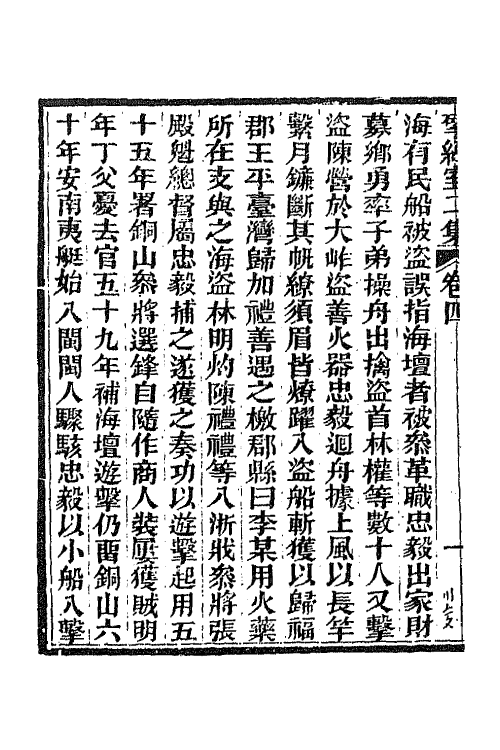 揅經室二集 卷四 一
海有民船被盜誤指海壇者被叅革職忠毅出家財
募鄉勇率子弟操舟出擒盜首林權等數十人又擊
盜陳營於大岞盜善火器忠毅迴舟據上風以長竿
繫月鐮斷其帆繚須眉皆燎躍入盜船斬獲以歸福
郡王平臺灣歸加禮善遇之檄郡縣曰李某用火藥
所在支與之海盜林明灼陳禮禮等入浙戕叅將張
殿魁總督屬忠毅捕之遂獲之奏功以遊擊起用五
十五年署銅山叅將選鋒自隨作商人裝屢獲賊明
年丁父憂去官五十九年補海壇遊擊仍畱銅山六
十年安南夷艇始入閩閩人驟駭忠毅以小船入擊